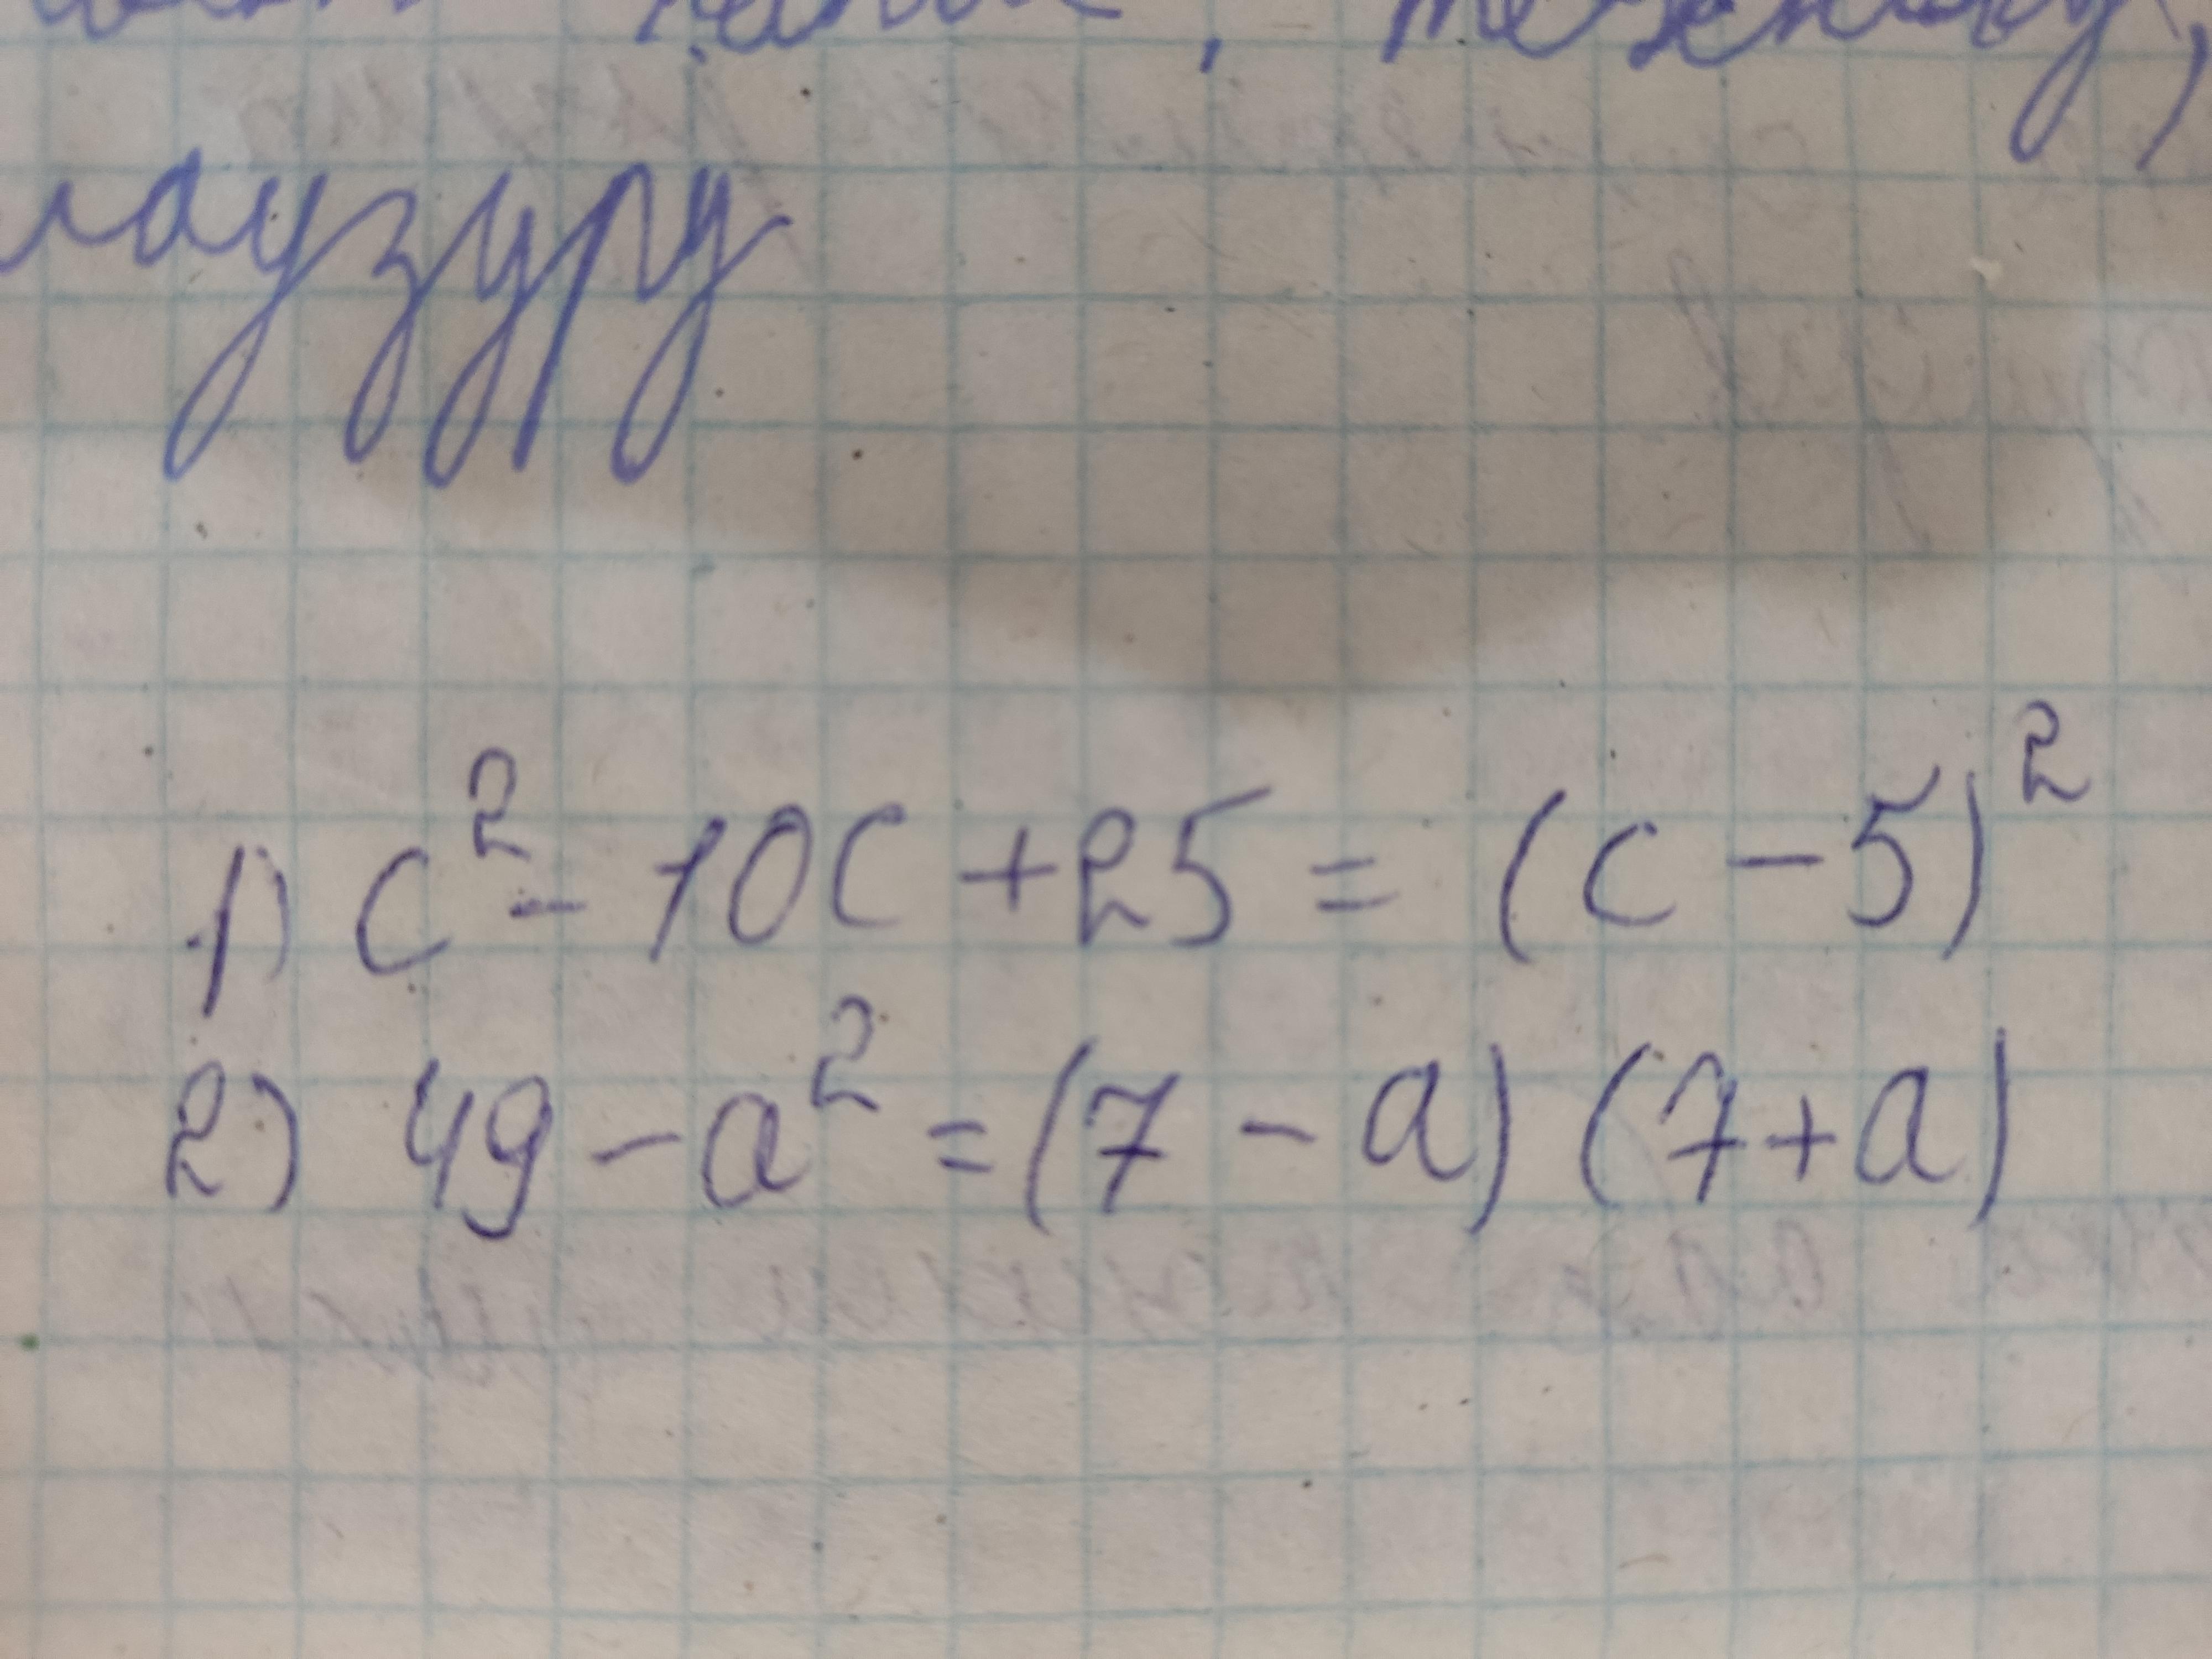 лаузуру
1) c² - 10c + 25 = (c - 5)²
2) 49 - a² = (7 - a) (7 + a)